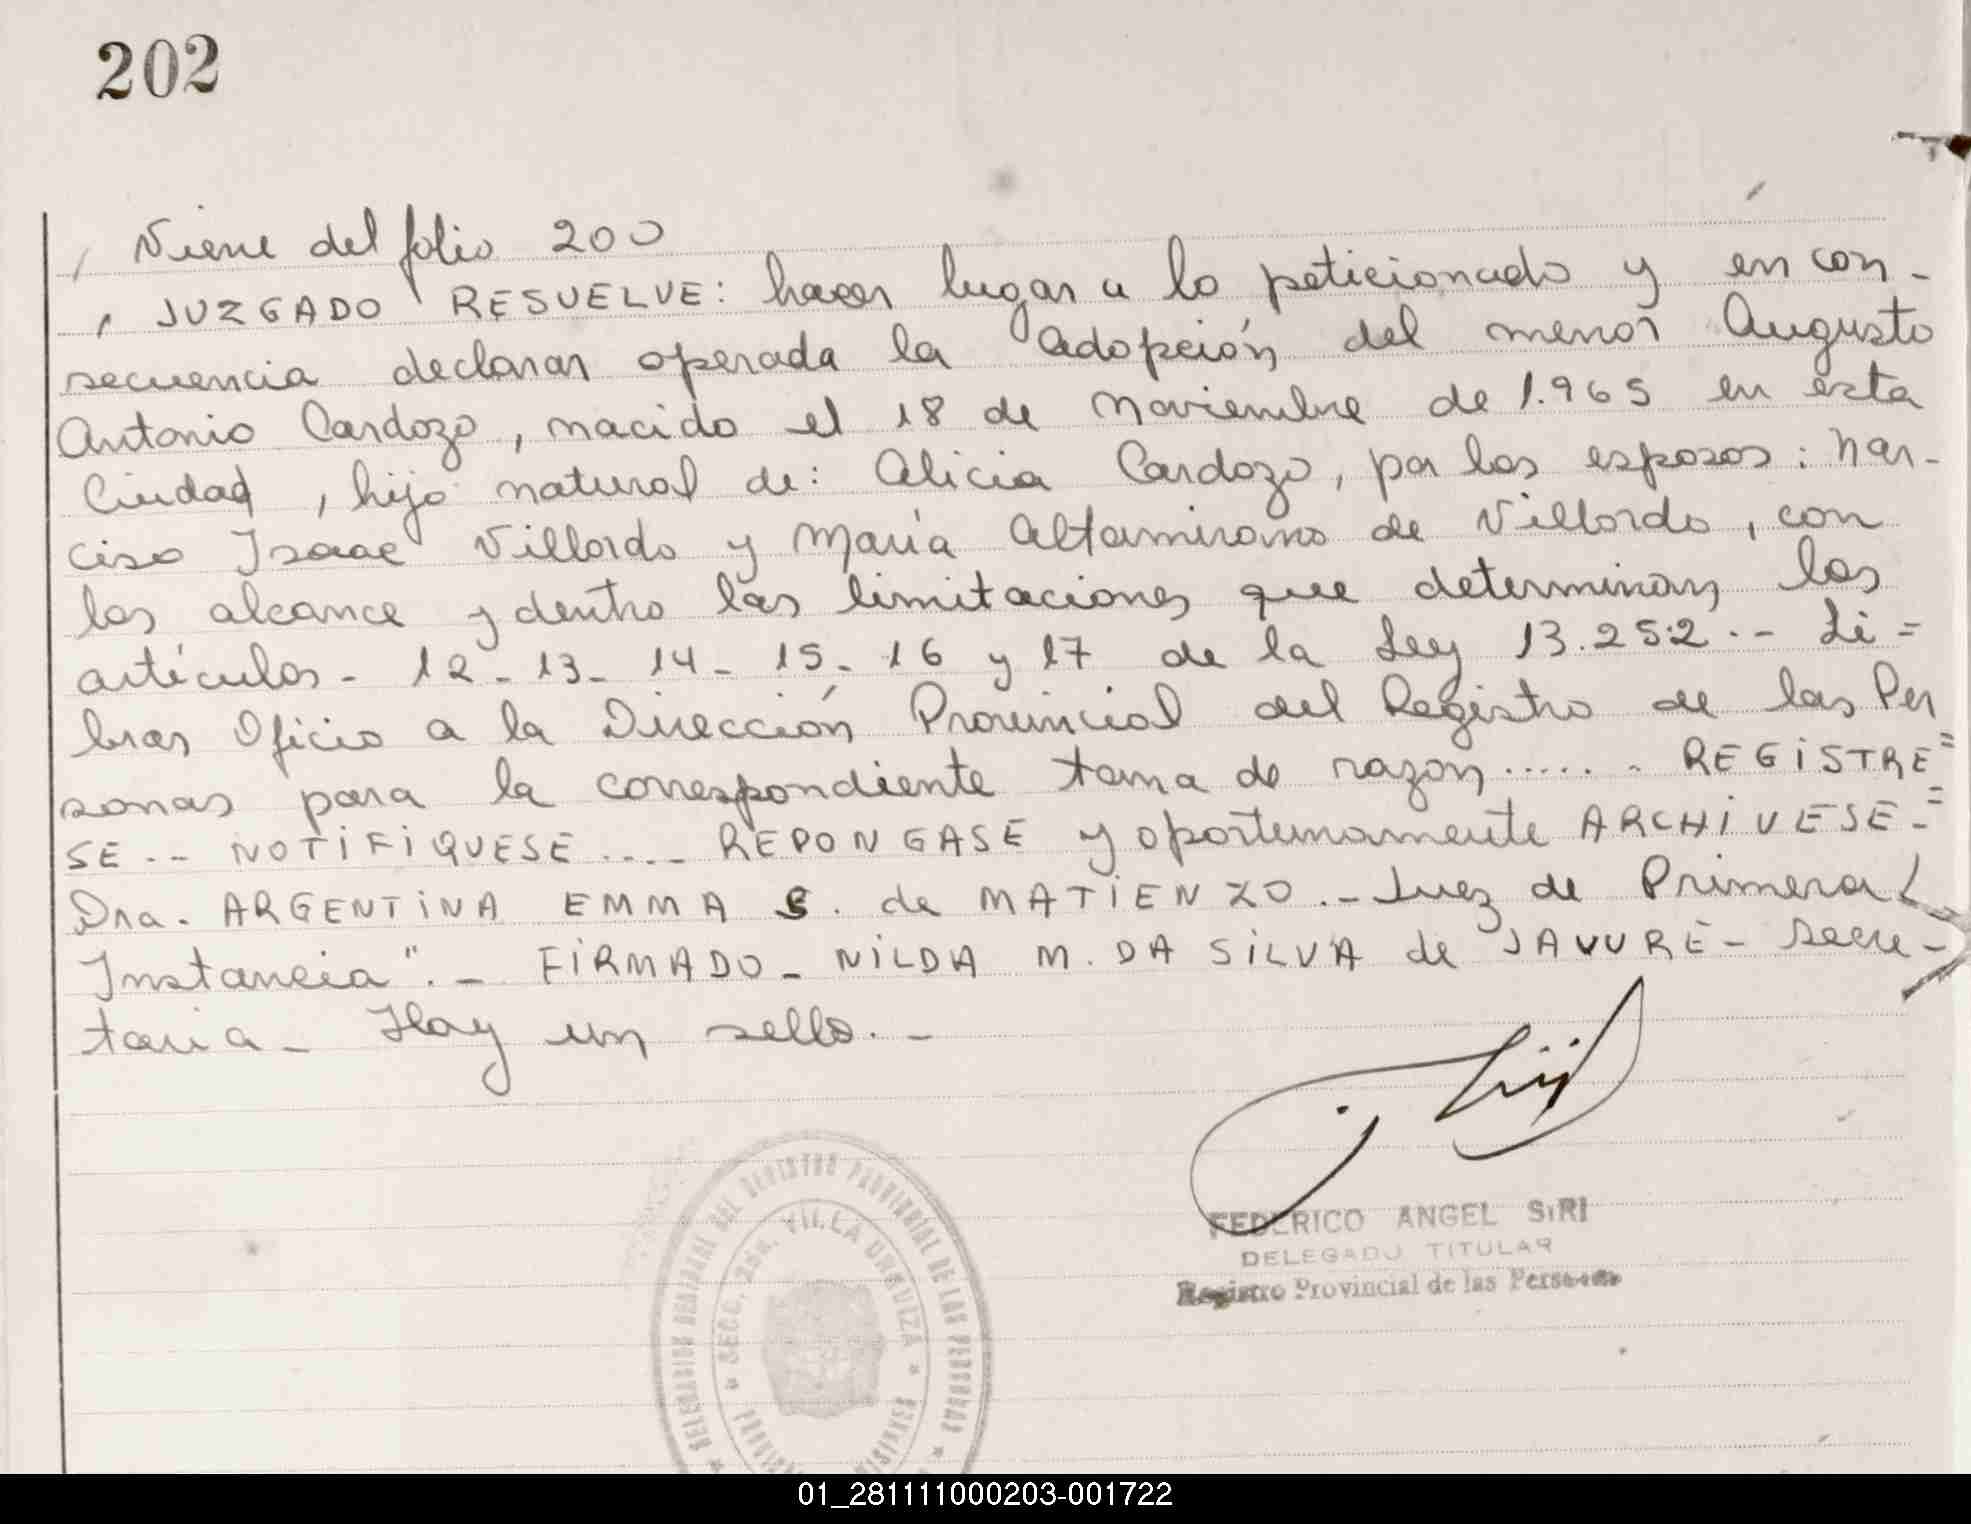 202
Viene del folio 200
, JUZGADO RESUELVE: hacer lugar a lo peticionado y en con-
secuencia declarar operada la adopción del menor Augusto
Antonio Cardozo, nacido el 18 de Noviembre de 1.965 en esta
Ciudad, hijo natural de: Alicia Cardozo, por los esposos: Nar-
ciso Isaac Villordo y María Altamirano de Villordo, con
los alcance y dentro las limitaciones que determinan los
artículos- 12-13-14-15-16 y 17 de la Ley 13.252.- Li=
bras Oficio a la Dirección Provincial del Registro de las Per
sonas para la correspondiente toma de razon...... REGISTRE=
SE.-- NOTIFIQUESE.... REPONGASE y oportunamente ARCHIVESE.=
Dra. ARGENTINA EMMA S. de MATIENZO.- Juez de Primera
Instancia".- FIRMADO- NILDA M. DA SILVA de JAVURE- Secre-
taria- Hay un sello.-
FEDERICO ANGEL SIRI
DELEGADO TITULAR
Registro Provincial de las Personas
REGISTRO PROVINCIAL DE LAS PERSONAS
SEC. 2da. VILLA URQUIZA
01_281111000203-001722